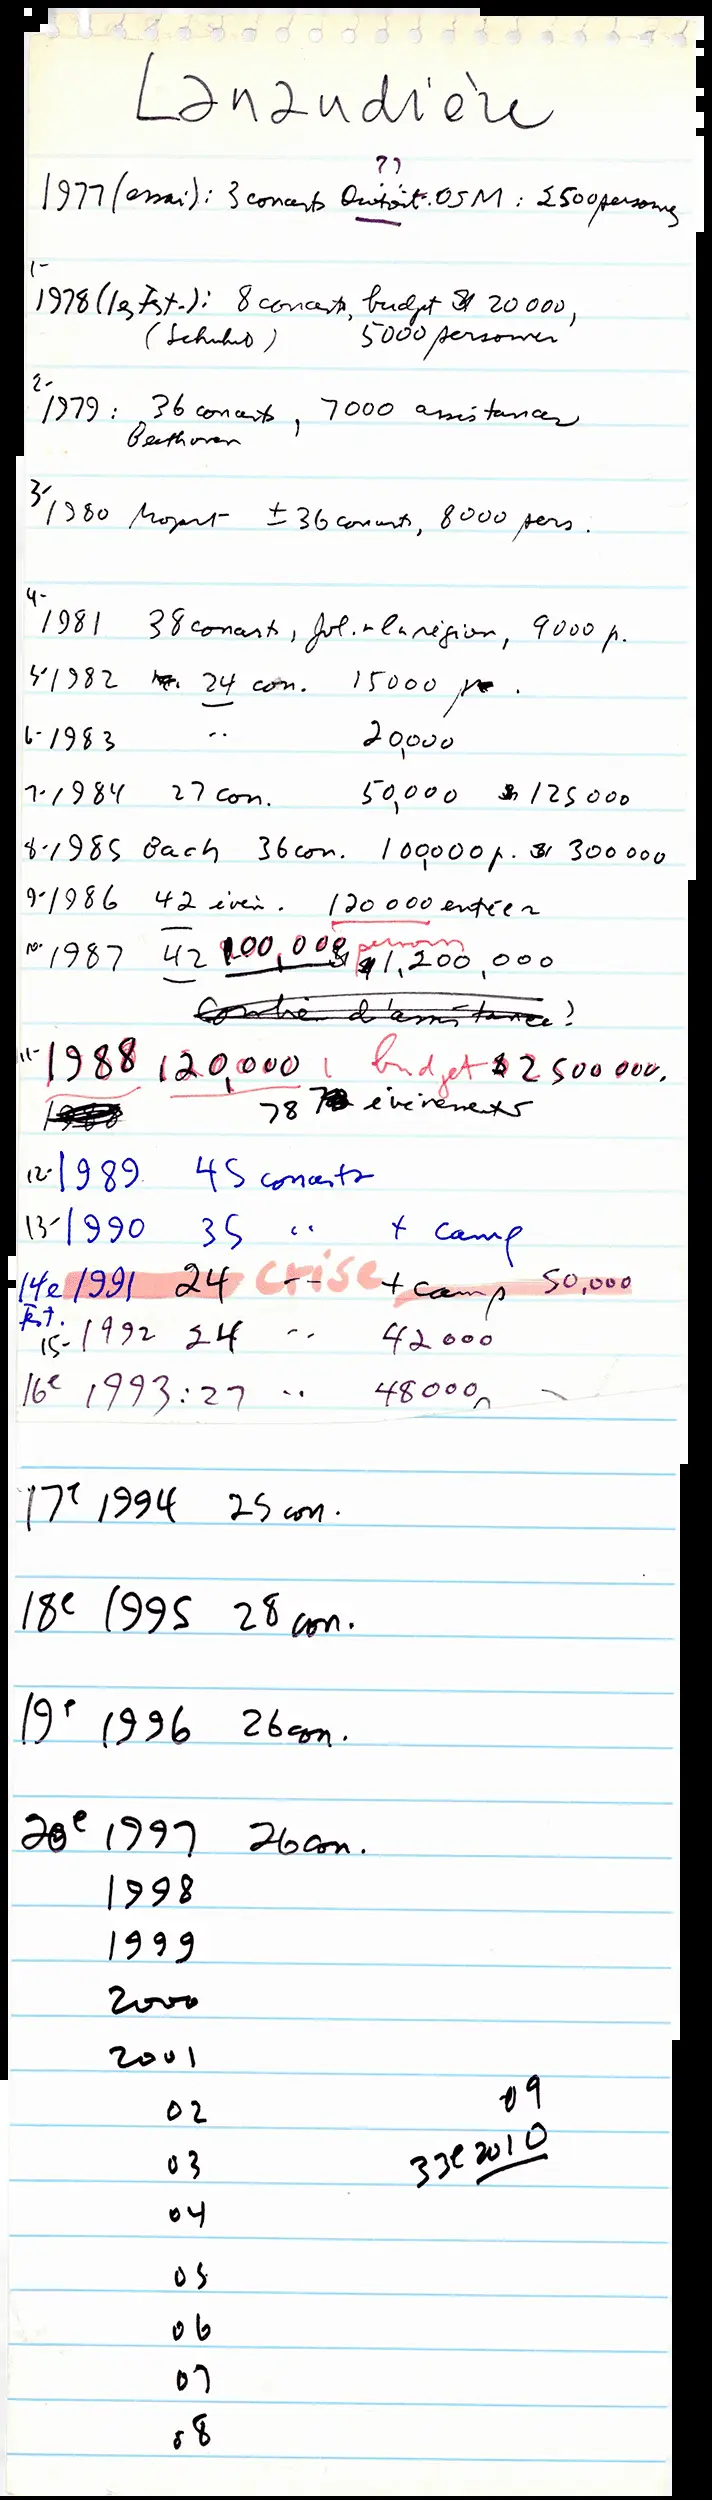 Lanaudière
??
1977 (essai): 3 concerts Dutoit. OSM: 2500 personnes
1-
1978 (1er Fest.): 8 concerts, budget $ 20 000,
(Schubert) 5000 personnes
2-
1979: 36 concerts, 7000 assistances
Beethoven
3-
1980 Mozart ± 36 concerts, 8000 pers.
4-
1981 38 concerts, région, 9000 p.
5-1982 24 con. 15000 p.
6-1983 " 20,000
7-1984 27 con. 50,000 $ 125 000
8-1985 Bach 36 con. 100,000 p. $ 300 000
9-1986 42 évén. 120 000 entrées
10-1987 42 100,000 personnes $1,200,000
Combien d'assistance?
11-1988 120,000 budget $ 2 500 000.
1988 78 évènements
12-1989 45 concerts
13-1990 35 " + camp
14e 1991 24 crise " + camp 50,000
Fest.
15-1992 24 " 42 000
16e 1993: 27 " 48 000
17e 1994 25 con.
18e 1995 28 con.
19e 1996 26 con.
20e 1997 26 con.
1998
1999
2000
2001
02 09
03 33e 2010
04
05
06
07
08